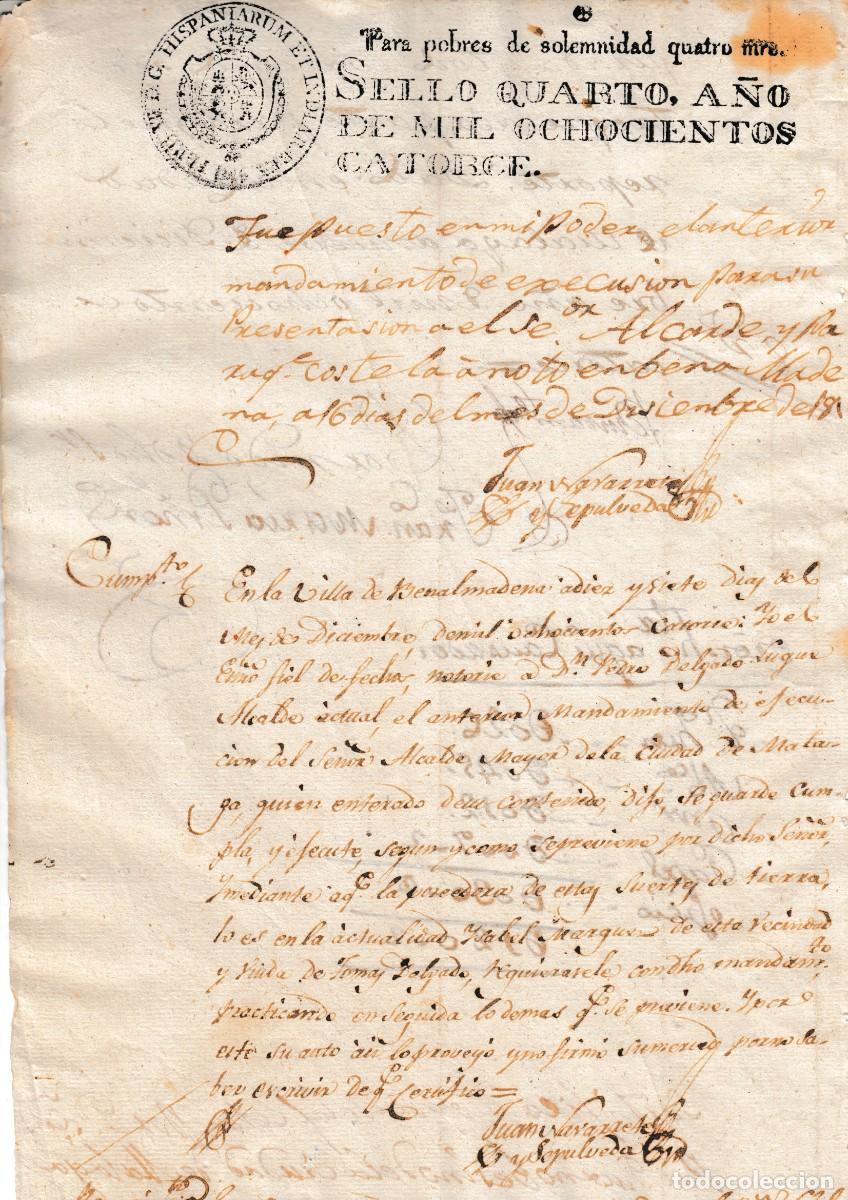 HISPANIARUM ET INDIAR. REX
Para pobres de solemnidad quatro mrs.
SELLO QUARTO, AÑO
DE MIL OCHOCIENTOS
CATORCE.
Fue puesto en mi poder, el anterior
mandamiento de execusion para su
Presentasion a el Se.or Alcarde, y pa
ra q.e coste la ànoto en bena Made
na, a 16 dias del mes de Disiembre de 181
Juan Navarrete
y Sepulveda
Cump.to En la Villa de Benalmadena adiez y siete dias del
Mes de Diciembre, de mil ochocientos Catorce: Yo el
Essno fiel de fechas, notorie a D.n Pedro Delgado Luque
Alcalde actual, el anterior Mandamiento de efecu-
cion del Señor Alcalde Mayor de la Ciudad de Mala-
ga, quien enterado desu contenido, difo, se guarde Cum-
pla, y efecute, segun y como sepreviene por dicho Señor,
Ymediante aq.e la poseedora de estas Suertes de tierra,
lo es en la actualidad Ysabel Marquez de esta Vecindad
y Viuda de Tomas Delgado, requierasele condho mandam.to
practicando en seguida lo demas q.e se previene. Y por
este su auto asi lo proveyò, y no firmò sumerced por no sa-
ber escrivir de q.e Certifico =
Juan Navarrete
y Sepulveda
todocoleccion